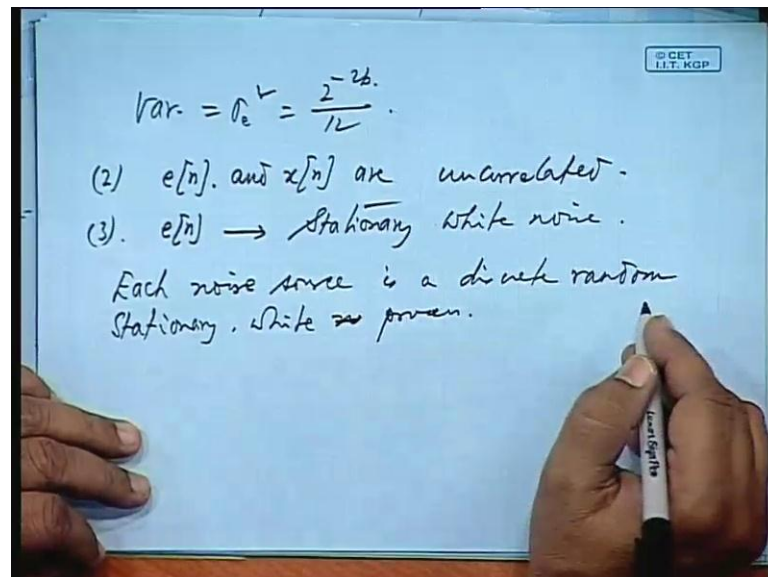 © CET
I.I.T. KGP
Var. = σₑ² = 2^-2b. / 12 .
(2) e[n]. and x[n] are uncorrelated.
(3). e[n] → Stationary white noise.
Each noise source is a discrete random
Stationary. White process.